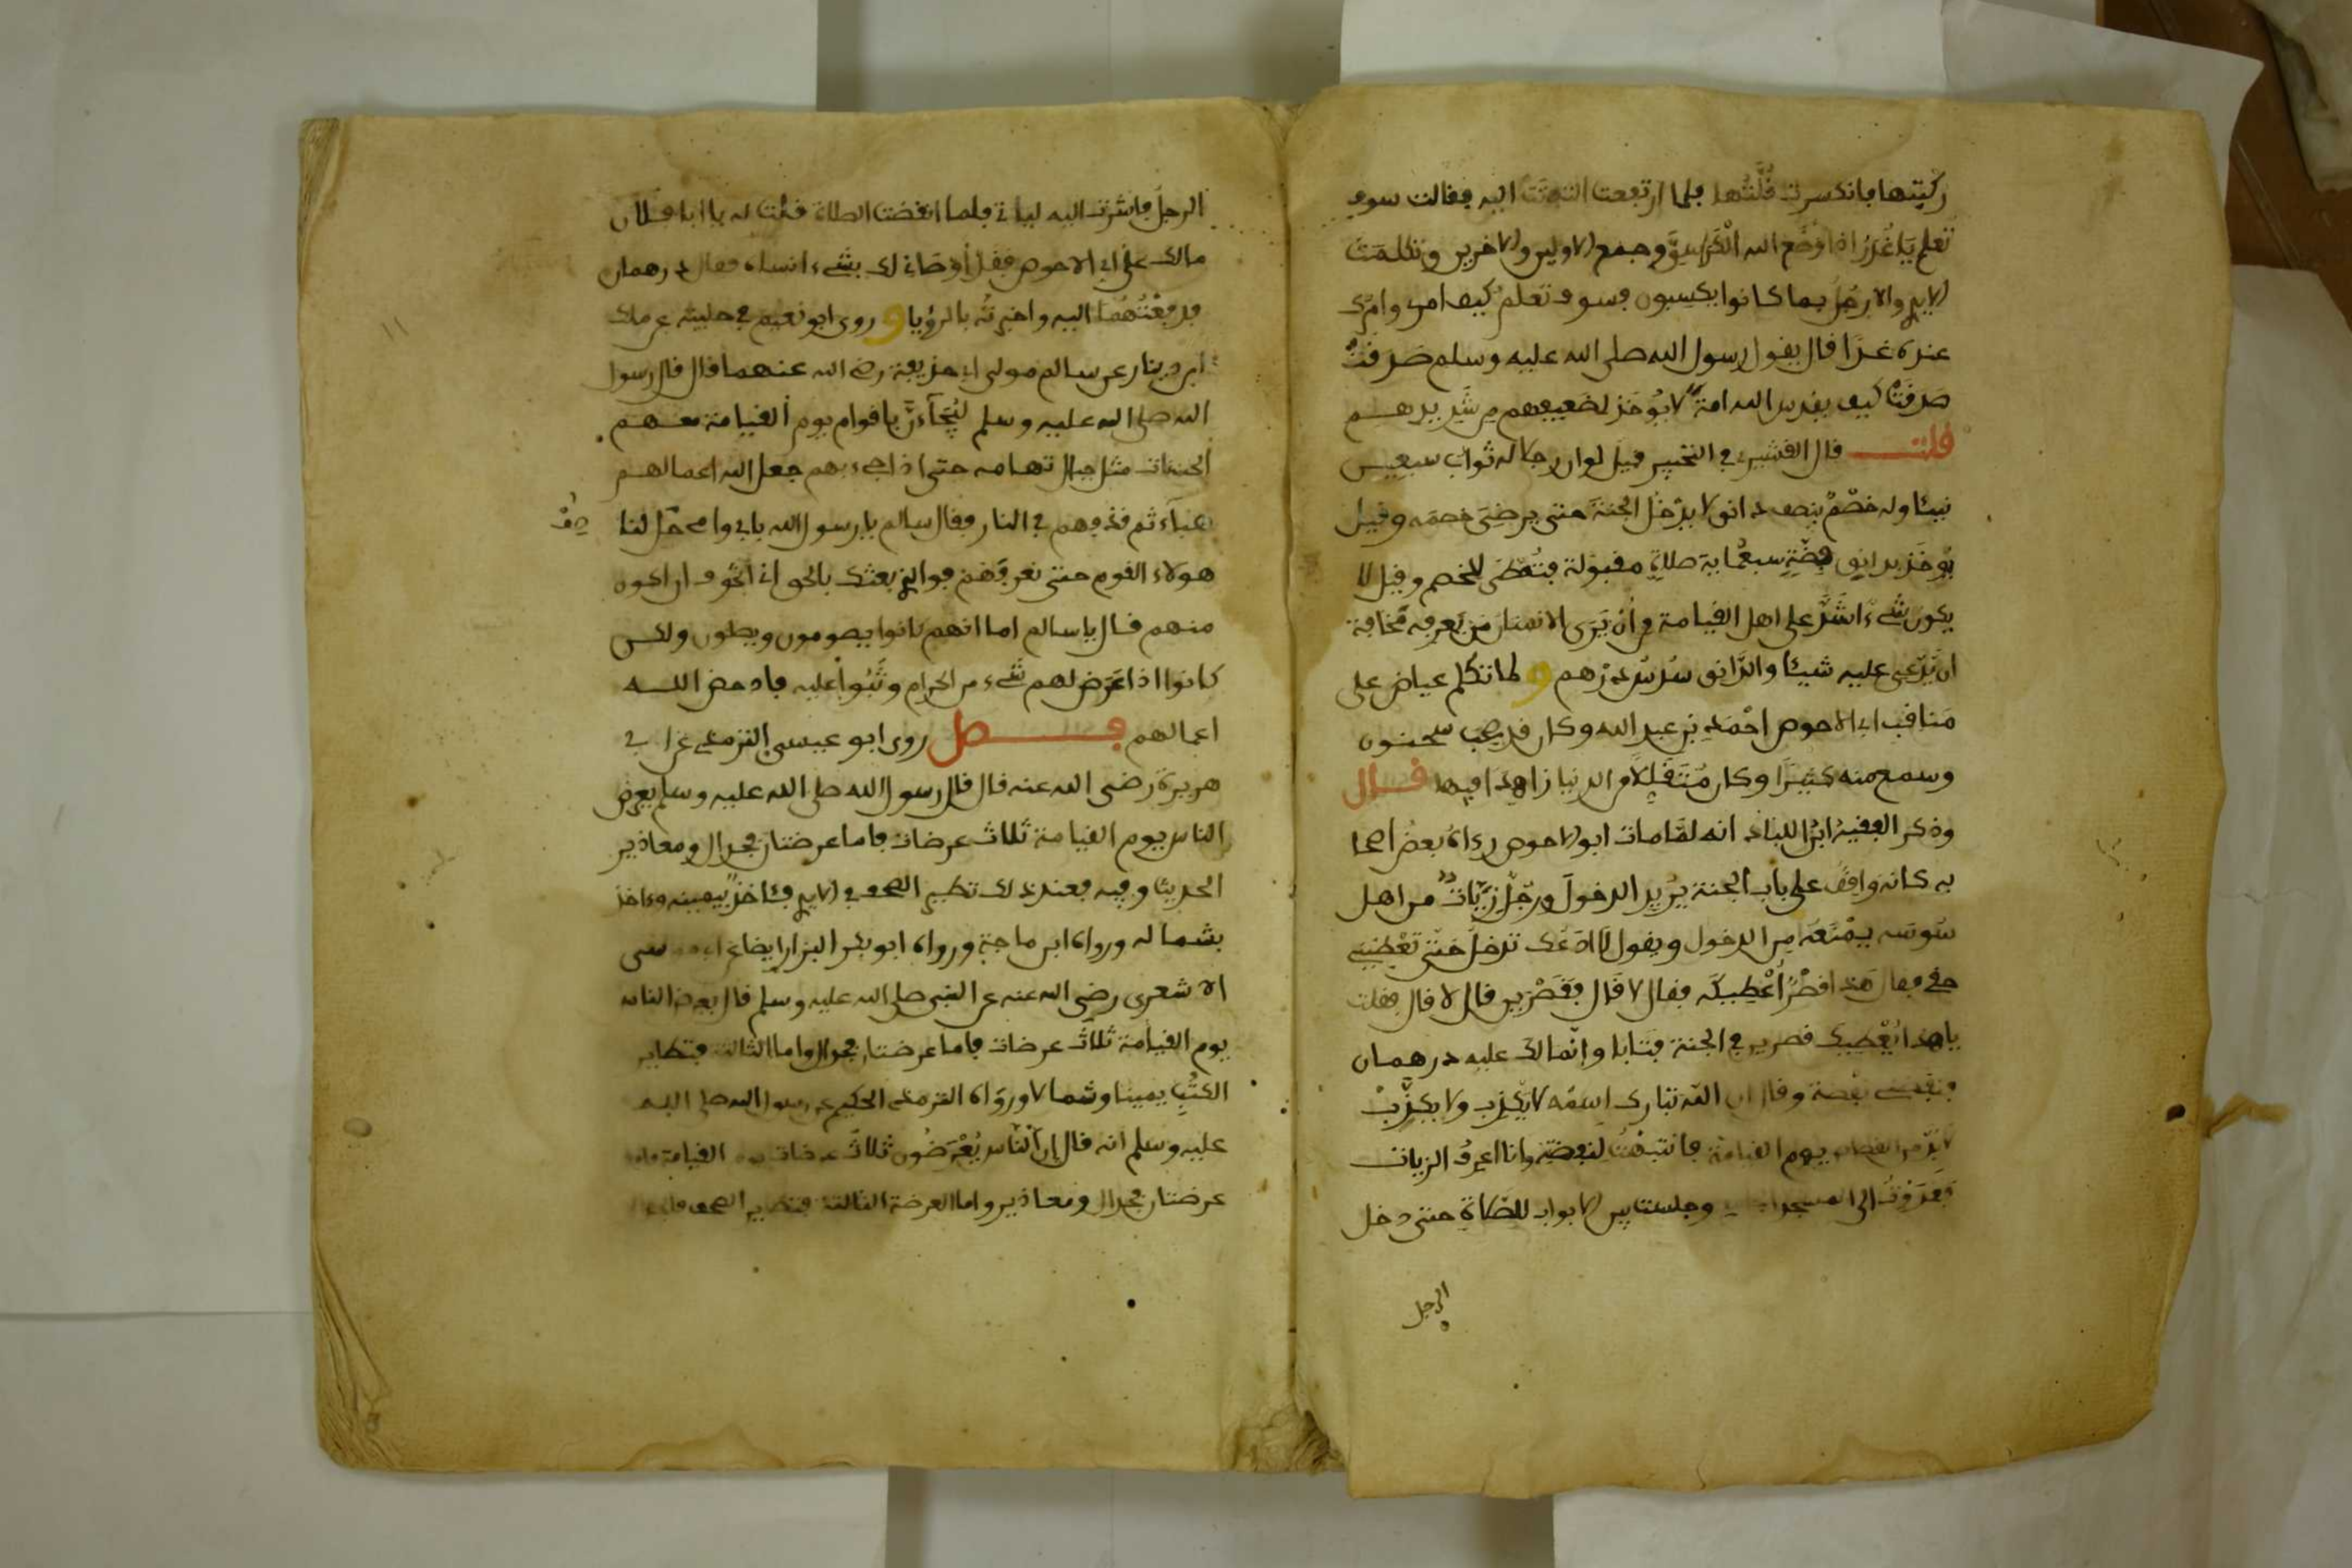 ركبتها فانكسرت قُلَّتُها فلما ارتفعت التفتت اليه فقالت سوف
تعلم يَا غُدَرُ اذا وَضَع الله الْكُرْسِيَّ وجمع الاولين والاخرين وتكلمت
الايدي والارجُل بما كانوا يكسبون فسوف تعلم كيف امري وامرك
عنده غدًا قال يقول رسول الله صلى الله عليه وسلم صَدَقَتْ
صَدَقَتْ كيف يقدس الله امةً لا يُؤخَذ لضعيفهم من شديدهم
قلت قال القشيري في التحبير قيل لو ان رجلا له ثواب سبعين
نبيئا وله خصْمٌ بنصف دانق لا يَدْخُل الجنةَ حتى يرضِيَ خصمَه وقيل
يؤخَذ بدانِق فِضّةٍ سبعُمايةِ صلاةٍ مقبولة فتُعْطَى للخصم وقيل لا
يكون شيءٌ اشَدَّ على اهل القيامة من أن يَرَى الانسان مَن يَعرِفه مَخافة
ان يَدّعي عليه شيئا والدَّانِق سُدُسُ درْهم و لما تكلم عياض على
مَناقب ابي الاحوص احْمَدَ بْن عبد الله وكان قد صحب سحنون
وسمع منه كثيرًا وكان مُتَقَلِّلًا من الدنيا زاهدا فيها قال
وذكر الفقيهُ ابْنُ اللباد انه لمّا مات ابو الاحوص رءاهُ بعضُ اصحا
به كانه واقِفٌ على باب الجنة يريد الدخولَ ورجُلٌ زيَّاتٌ من اهل
سُوسَه يمْنَعُه من الدخول ويقول لَا ادَعُك تدخلُ حتّى تعْطِيَني
حقي فقال هَذا قصْرٌ أُعْطِيكَه فقال لا قال فقصْرَين قال لا قال فقلت
يا هذا يُعْطِيكَ قصرين في الجنة فتابا وانّما لك عليه درهمان
فنفضني نفضة وقال ان اللّه تبارك اسمُه لا يَكْذِب ولا يُكَذَّبْ
لا بُدّ من القصاص يوم القيامة فانتبهْتُ لنفضتِه وانا اعرِفُ الزيات
فغَدَوْتُ الى المسجد وجلست بين الابواب للصّلاةِ حتى دخل
الرجل
الرجل فاشرت اليه ليأتي فلما انقضت الصلاة قلت له يا ابا فلان
مالك على ابي الاحوص فقل أَوْصَاني لك بشيء انساه فقال درهمان
فدفعْتُهُما اليه واخبرتُه بالرؤيا و روى ابو نعيم في حليته عن ملك
ابن دينار عن سالم مولى ابي حذيفة رضي الله عنهما قال قال رسول
الله صلى الله عليه وسلم لَيُجَآءَنَّ باقوام يوم القيامة معهم
الحسنات مثل جبال تهامه حتى اذا جيء بهم جعل الله اعمالهم
هَباءً ثم قذفهم في النار فقال سالم يا رسول الله بابي وامي حَلّ لنا
صفْ
هولاء القوم حتى نعرِفَهُم فوالذي بعثك بالحق اني اتخوف ان اكون
منهم قال يا سالم اما انهم كانوا يصومون ويصلون ولكن
كانوا اذا عَرَضَ لهم شيء من الحرام وَثَبُوا عليه فادحض الله
اعمالهم فصل روى ابو عيسى الترمذي عن ابي
هريرة رضي الله عنه قال قال رسول الله صلى الله عليه وسلم يعرض
الناس يوم القيامة ثلاث عرضات فاما عرضتان فجدال ومعاذير
الحديث وفيه فعند ذلك تطير الصحف في الايدي فئاخذٌ بيمينه وءاخذ
بشماله ورواه ابن ماجة ورواه ابو بكر البزار ايضا عن ابي موسى
الاشعري رضي الله عنه عن النبي صلى الله عليه وسلم قال يعرض الناس
يوم القيامة ثلاثَ عرضات فاما عرضتان فجدال واما الثالثة فتطاير
الكتُبِ يمينا وشمالا ورواه الترمذي الحكيم عن رسول الله صلى الله
عليه وسلم انه قال إن الناس يُعْرَضُون ثلاثَ عرضات يوم القيامة فاما
عرضتان فجدال ومعاذير واما العرضة الثالثة فتطاير الصحف